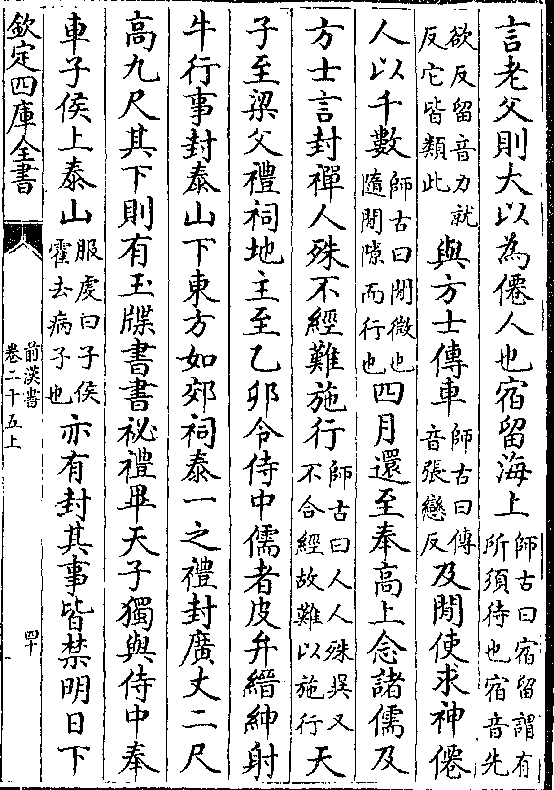 言老父則大以為僊人也宿留海上師古曰宿留謂有所須待也宿音先
欲反留音力就反它皆類此與方士傳車師古曰傳音張戀反及閒使求神僊
人以千數師古曰閒微也隨閒隙而行也四月還至奉高上念諸儒及
方士言封禪人殊不經難施行師古曰人人殊異又不合經故難以施行天
子至梁父禮祠地主至乙卯令侍中儒者皮弁縉紳射
牛行事封泰山下東方如郊祠泰一之禮封廣丈二尺
高九尺其下則有玉牒書書祕禮畢天子獨與侍中奉
車子侯上泰山服虔曰子侯霍去病子也亦有封其事皆禁明日下
欽定四庫全書
前漢書
卷二十五上
四十